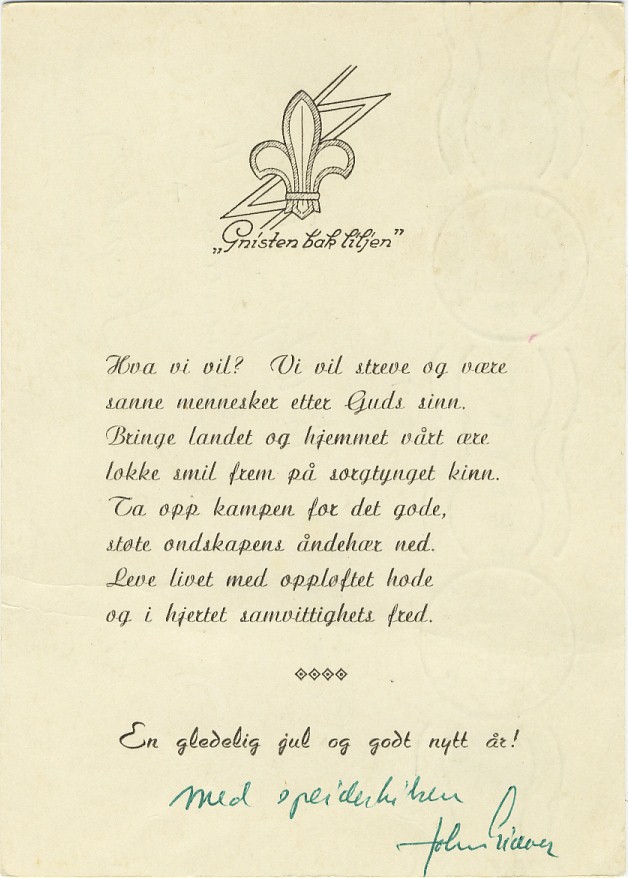 „Gnisten bak liljen”
Hva vi vil? Vi vil streve og være
sanne mennesker etter Guds sinn.
Bringe landet og hjemmet vårt ære
lokke smil frem på sorgtynget kinn.
Ta opp kampen for det gode,
støte ondskapens åndehær ned.
Leve livet med oppløftet hode
og i hjertet samvittighets fred.
En gledelig jul og godt nytt år!
Med speiderhilsen
John Giæver